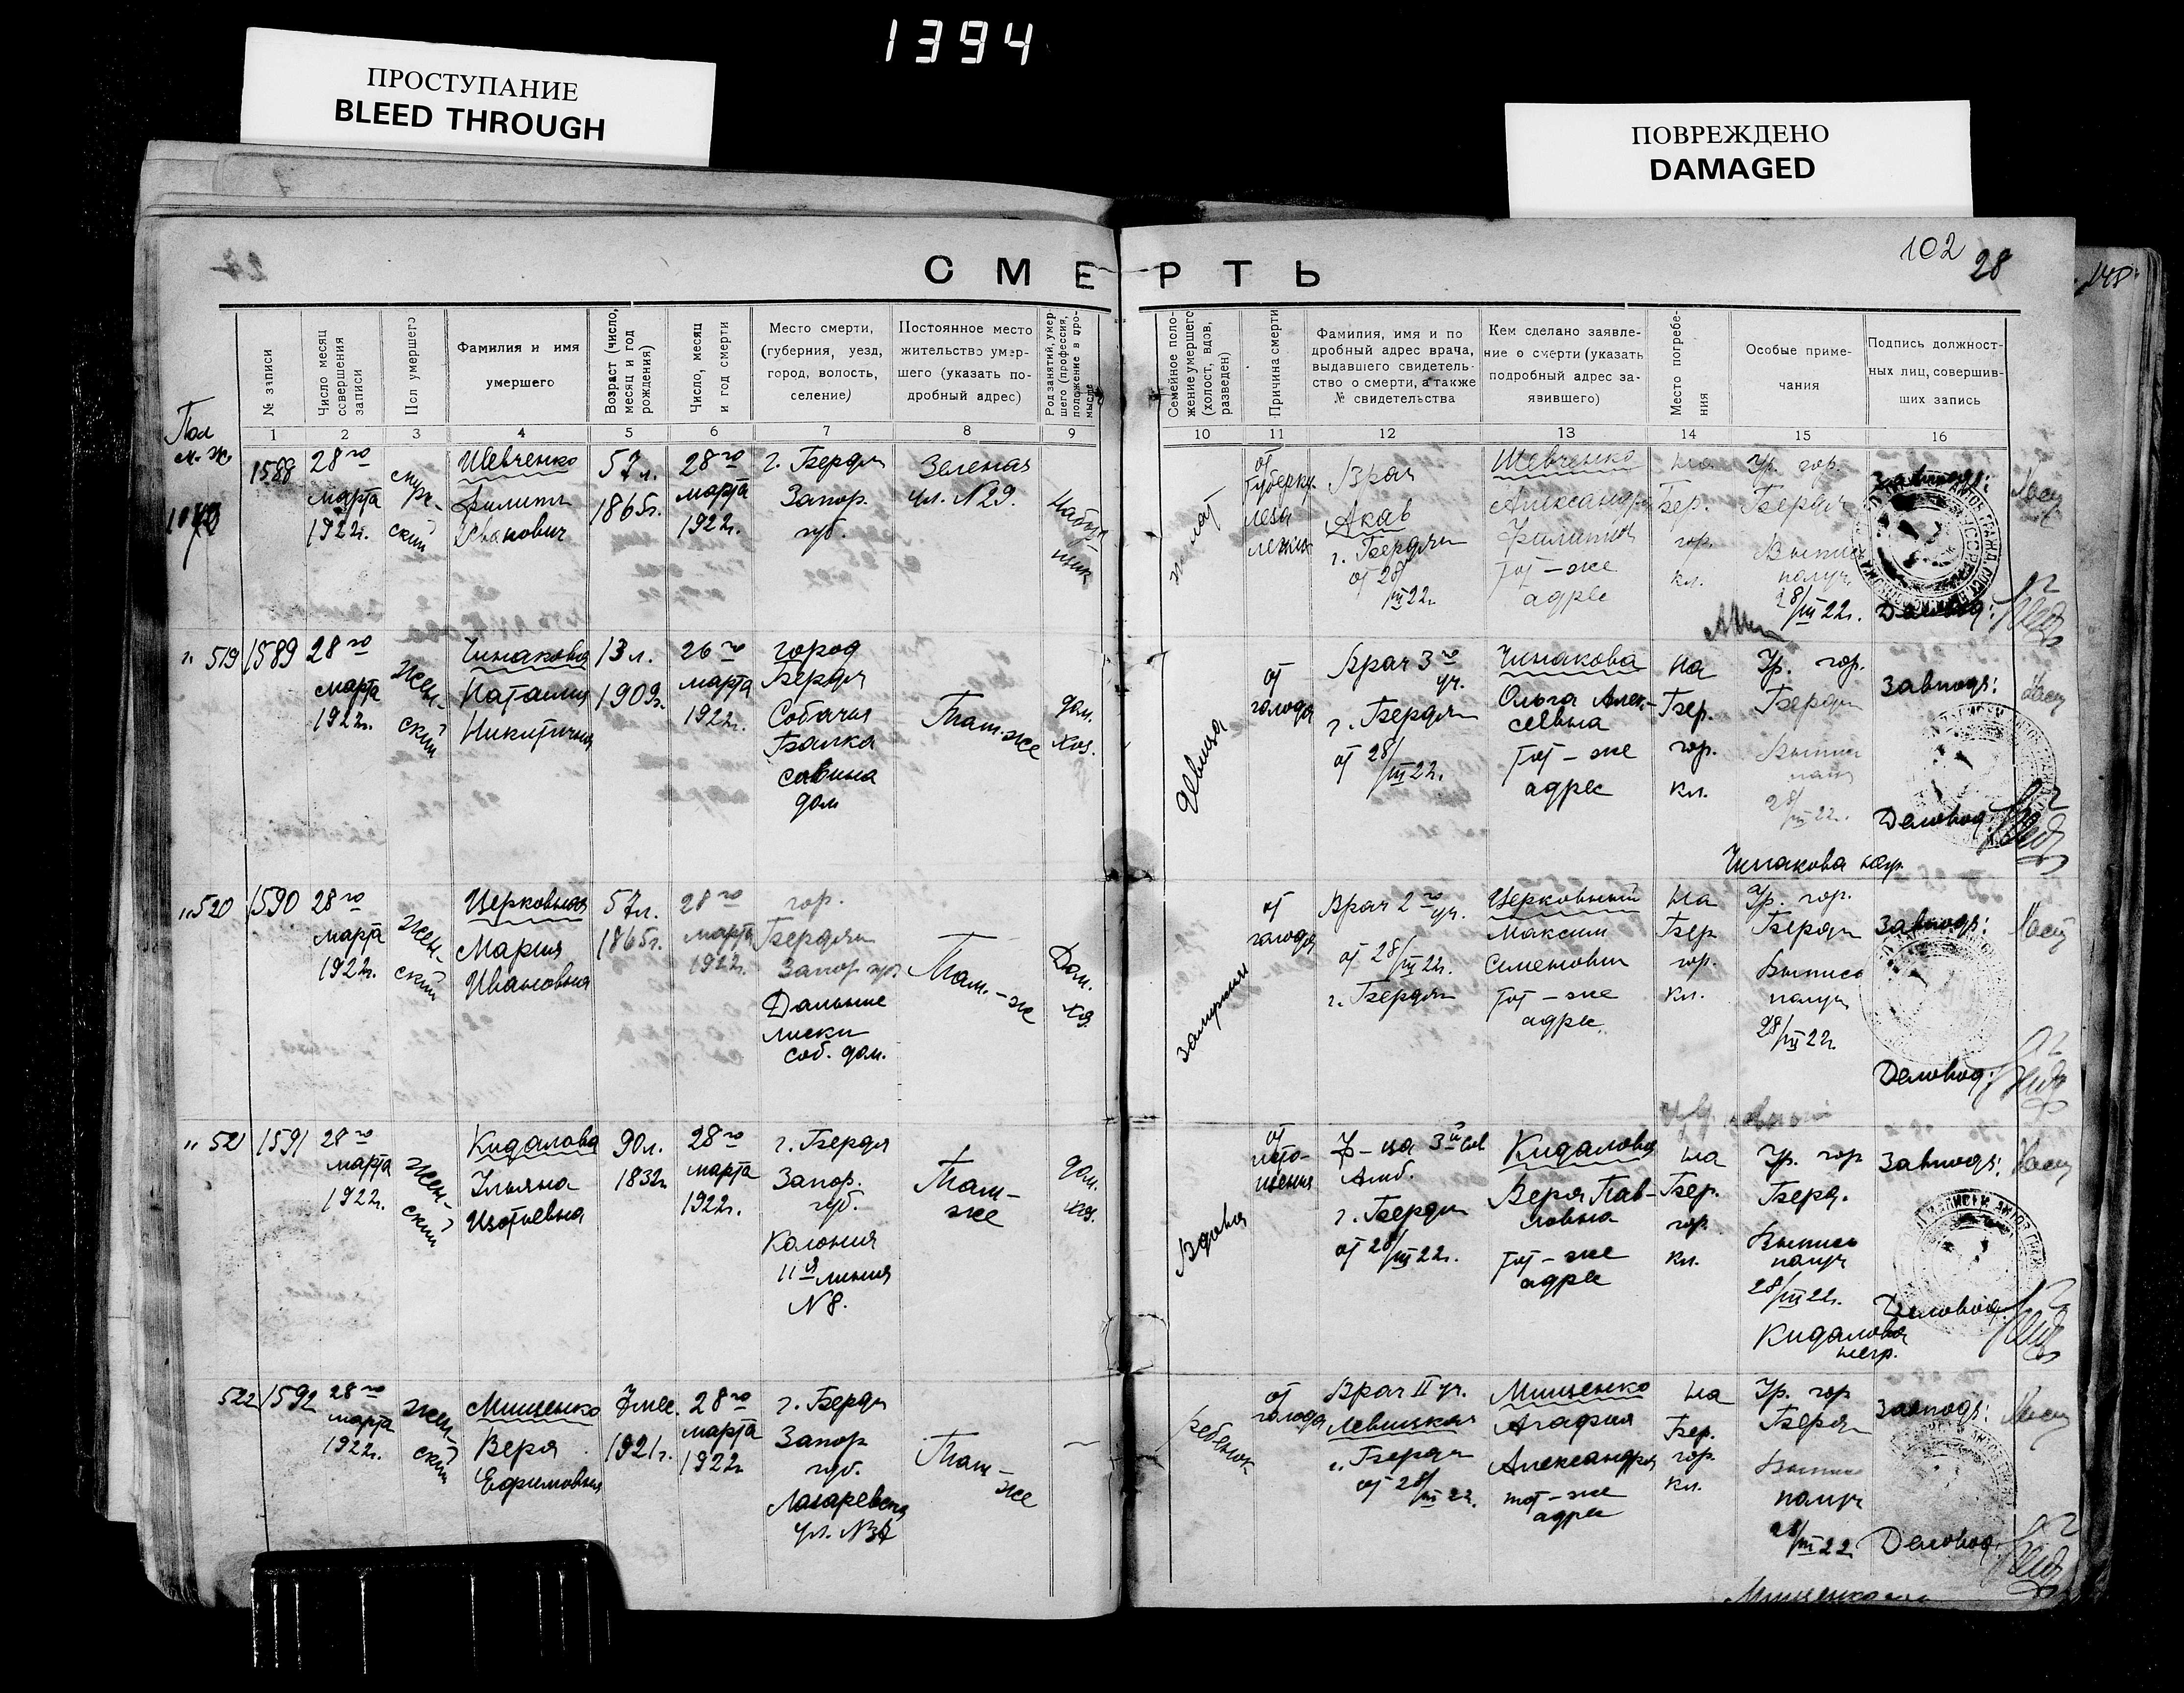 1394
ПРОСТУПАНИЕ
BLEED THROUGH
ПОВРЕЖДЕНО
DAMAGED
102
28
СМЕРТЬ
№ записи
Число месяц совершения записи
Пол умершего
Фамилия и имя умершего
Возраст (число, месяц и год рождения)
Число, месяц и год смерти
Место смерти, (губерния, уезд, город, волость, селение)
Постоянное место жительство умершего (указать подробный адрес)
Род занятий, умершего (профессия, положение в промысле
Семейное положение умершего (холост, вдов, разведен)
Причина смерти
Фамилия, имя и подробный адрес врача, выдавшего свидетельство о смерти, а также № свидетельства
Кем сделано заявление о смерти (указать подробный адрес заявившего)
Место погребения
Особые примечания
Подпись должностных лиц, совершивших запись
1 2 3 4 5 6 7 8 9 10 11 12 13 14 15 16
Пол
м. ж.
1588
28го
марта
1922г.
муж-
ский
Шевченко
Филипп
Иванович
57л.
1865г.
28го
марта
1922г.
г. Бердян
Запор.
губ.
Зеленая
ул. N29.
от
туберку
леза
легких
Врач
Акав
г. Бердян
от 28/III 22г.
Шевченко
Александра
Филипов
тот-же
адрес
на
Бер.
гор.
кл.
Ур. гор.
Бердян
Выпись
получ.
28/III 22г.
Завподз:
Деловод:
" 519
1589
28го
марта
1922г.
жен-
ский
Чинакова
Наталия
Никитична
13л.
1909г.
26го
марта
1922г.
город
Бердян
Собачья
Балка
собвина
дом
Там-же
дом.
хоз.
девица
от
голода
Врач 3го
уч.
г. Бердян
от 28/III 22г.
Чинакова
Ольга Алек-
сеевна
тот-же
адрес
на
Бер.
гор.
кл.
Ур. гор.
Бердян
Выпись
28/III 22г.
Завподз:
Деловод:
Чинакова негр.
" 520
1590
28го
марта
1922г.
жен-
ский
Церковная
Мария
Ивановна
57л.
1865г.
28го
марта
1922г.
гор.
Бердян
Запор губ
Дальние
лиски
соб. дом.
Там-же
Дом.
хоз.
замужняя
от
голода
Врач 2го
уч.
от 28/III 22г.
г. Бердян
Церковный
Максим
Семенович
тот-же
адрес.
на
Бер
гор.
кл.
Ур. гор.
Бердян
Выпись
получ
28/III 22г.
Завподз:
Деловод:
" 521
1591
28го
марта
1922г.
жен-
ский
Кидалова
Ульяна
Изотьевна
90л.
1832г.
28го
марта
1922г.
г. Бердян
Запор.
губ.
Колония
11я линия
N8.
Там-
же
дом.
хоз.
Вдова
от
исто-
щения
Амб.
г. Бердян
от 28/III 22г.
Кидалова
Вера Пав-
ловна
тот-же
адрес
на
Бер.
гор.
кл.
Ур. гор
Берд.
Выпись
получ
28/III 22г.
Завподз:
Деловод:
Кидалова
негр.
522
1592
28го
марта
1922г.
жен-
ский
Мищенко
Вера
Ефимовна
7мес.
1921г.
28го
марта
1922г
г. Бердян
Запор
губ.
Лазаревская
ул.
Там-
же
—
ребенок
от
голода
Врач II уч.
Левицкая
г. Бердян
от 28/III 22.
Мищенко
Агафия
Александра
тот-же
адрес
на
Бер.
гор.
кл.
Ур. гор
Бердян
Выпись
получ
28/III 22
Завподз:
Деловод: